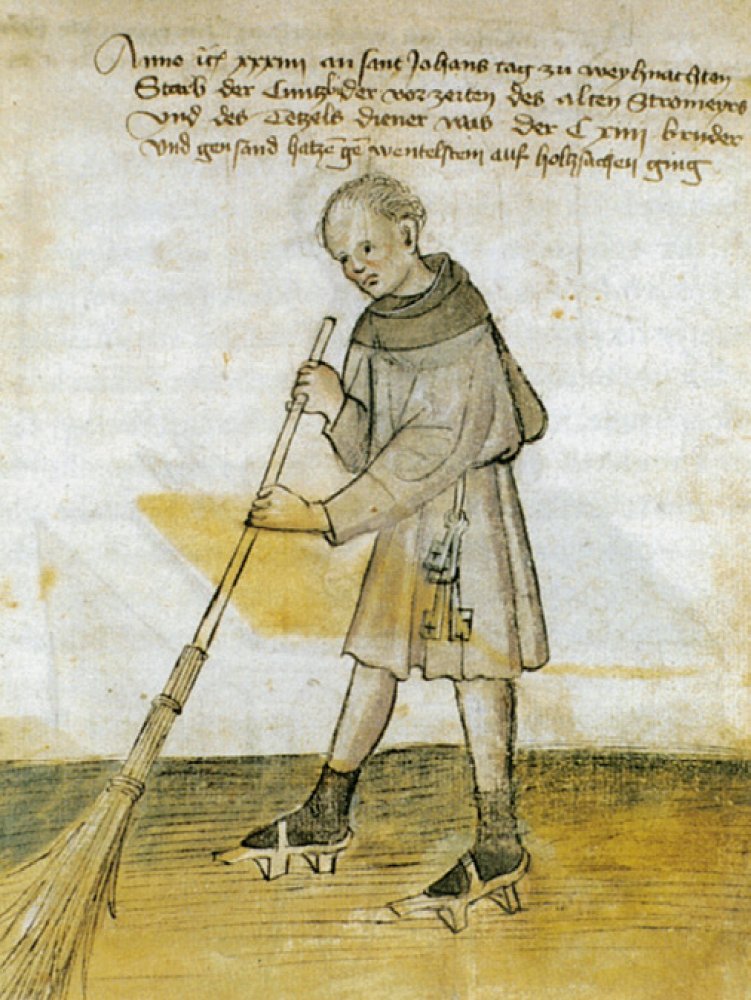 Anno xxxiiii an sant Johans tag zu weyhnachten
Starb der vor zeiten des alten Stromeyrs
Vnd des Tetzels diener was der C xiiii bruder
Vnd gen wentelstein auf holtzsachen ging